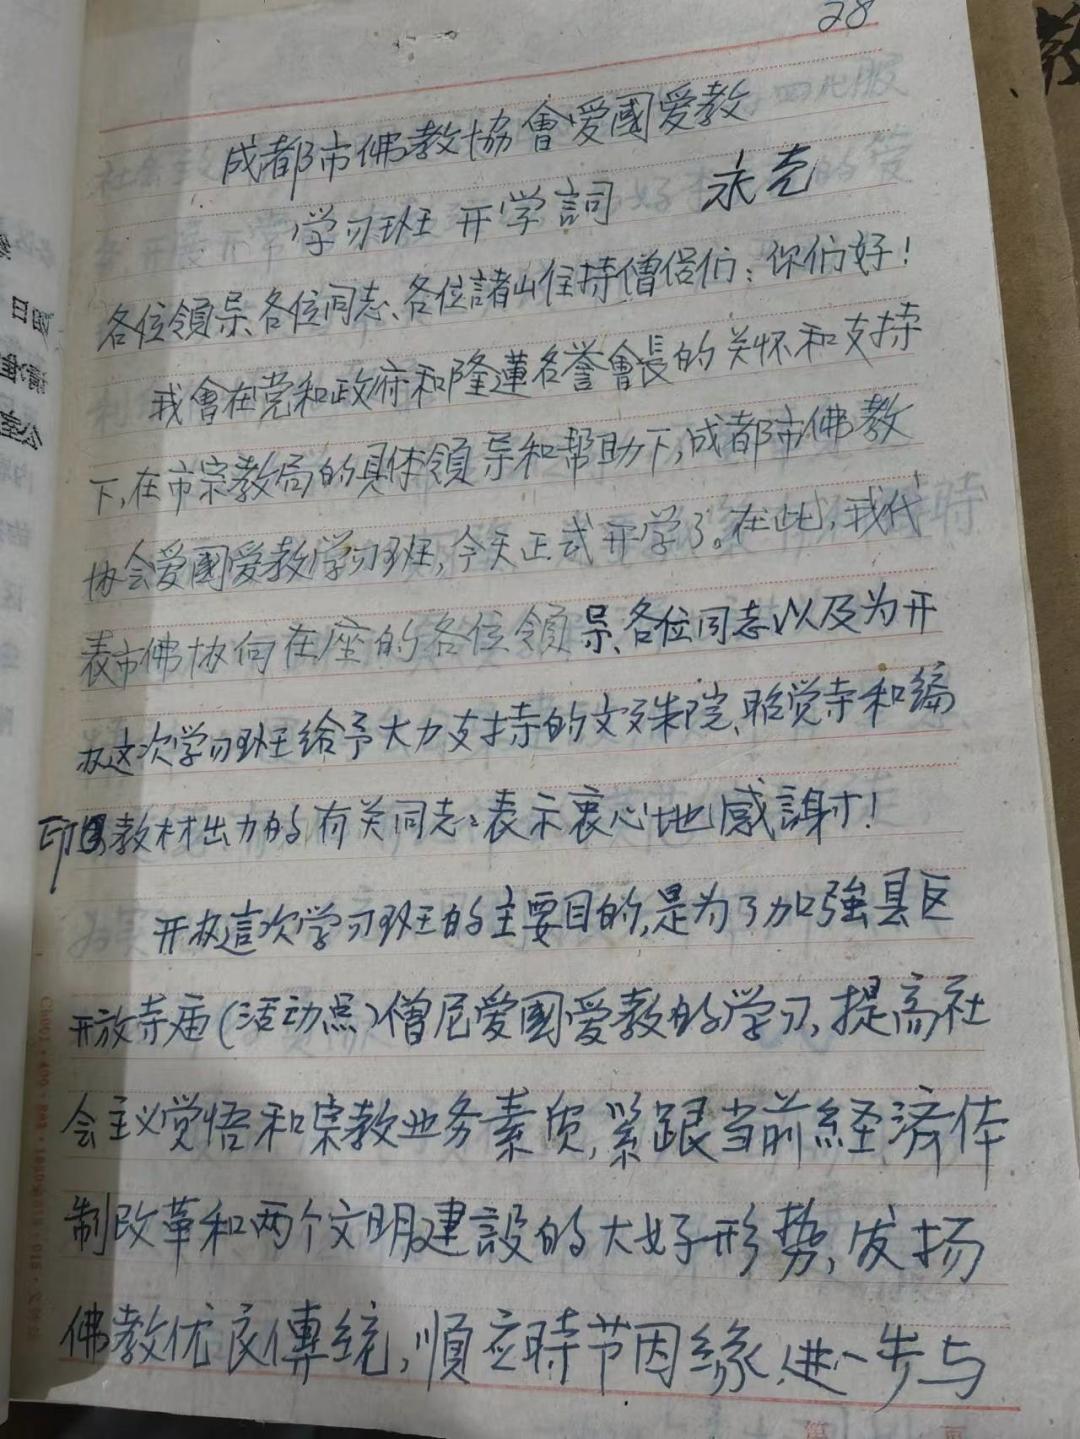 28
成都市佛教協會爱國爱教
学习班开学詞 永壳
各位領导、各位同志、各位諸山住持僧侣们：你们好！
我會在党和政府和隆蓮名誉會長的关怀和支持
下，在市宗教局的具体領导和帮助下，成都市佛教
协会爱國爱教学习班，今天正式开学了。在此，我代
表市佛协向在座的各位領导、各位同志、以及为开
办这次学习班给予大力支持的文殊院、昭觉寺和编
印教材出力的有关同志：表示衷心地感謝！
开办這次学习班的主要目的，是为了加強县区
开放寺庙（活动点）僧尼爱國爱教的学习，提高社
会主义觉悟和宗教业务素质，紧跟当前経済体
制改革和两个文明建設的大好形势，发扬
佛教优良傳统，順应時节因緣，进一步与